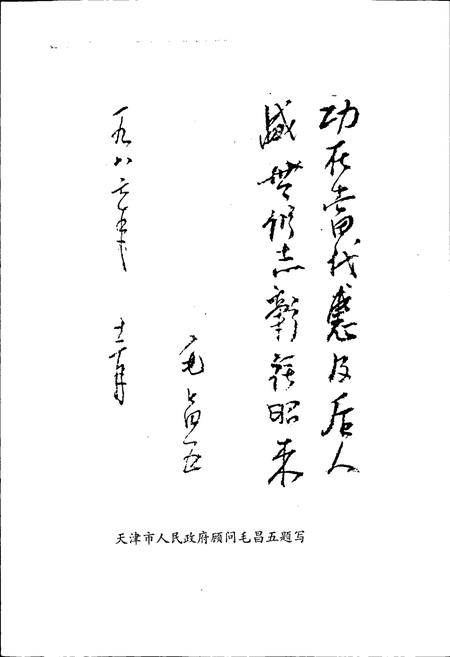 功在當代惠及后人
盛世修志昭来
毛昌五
一九八六年
月
天津市人民政府顾问毛昌五题写